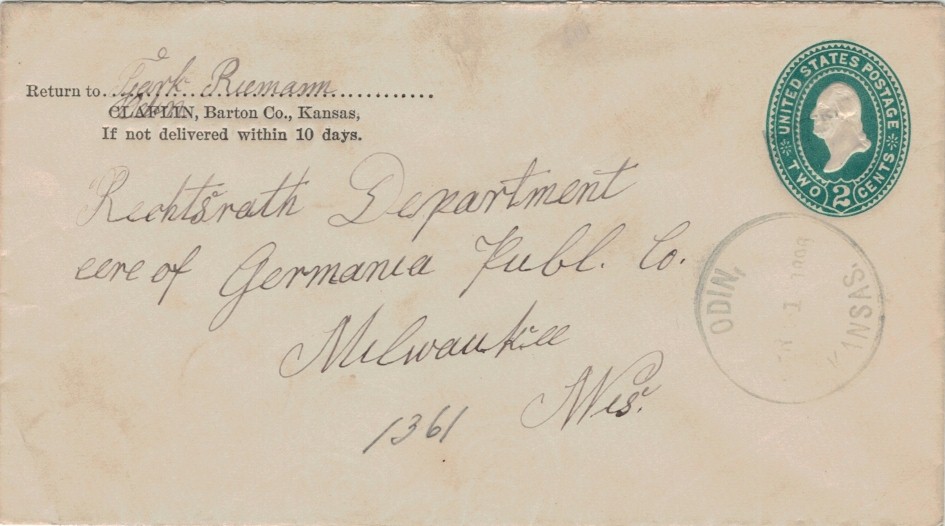 Return to Frank Riemann
Odin
CLAFLIN, Barton Co., Kansas,
If not delivered within 10 days.
UNITED STATES POSTAGE
TWO 2 CENTS
Rechtsrath Department
care of Germania Publ. Co.
Milwaukee
Wis.
1361
ODIN,
1
KANSAS.